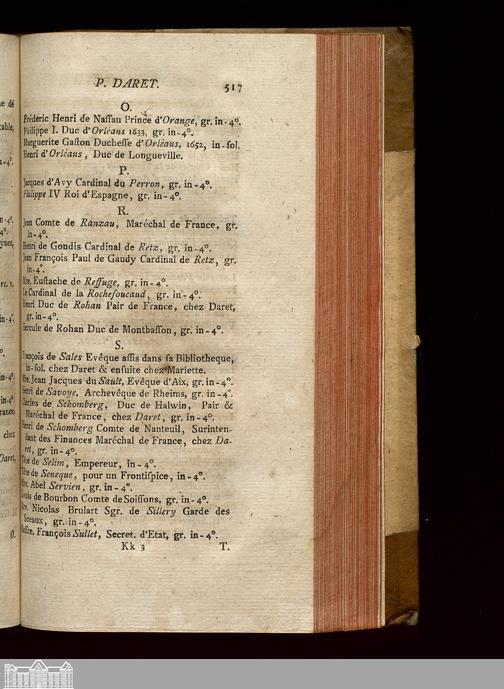 P. DARET. 517
O.
Fréderic Henri de Naſſau Prince d'Orange, gr. in-4°.
Philippe I. Duc d'Orléans 1633, gr. in-4°.
Marguerite Gaſton Ducheſſe d'Orléans, 1652, in-fol.
Henri d'Orléans, Duc de Longueville.
P.
Jacques d'Avy Cardinal du Perron, gr. in-4°.
Philippe IV Roi d'Espagne, gr. in-4°.
R.
Jean Comte de Ranzau, Maréchal de France, gr.
in-4°.
Henri de Gondis Cardinal de Retz, gr. in-4°.
Jean François Paul de Gaudy Cardinal de Retz, gr.
in-4°.
Mre. Euſtache de Reffuge, gr. in-4°.
Le Cardinal de la Rochefoucaud, gr. in-4°.
Henri Duc de Rohan Pair de France, chez Daret,
gr. in-4°.
Hercule de Rohan Duc de Montbaſſon, gr. in-4°.
S.
François de Sales Evêque aſſis dans ſa Bibliotheque,
in-fol. chez Daret & enſuite chez Mariette.
Mre. Jean Jacques du Sault, Evêque d'Aix, gr. in-4°.
Henri de Savoye, Archevêque de Rheims, gr. in-4°.
Charles de Schomberg, Duc de Halwin, Pair &
Maréchal de France, chez Daret, gr. in-4°.
Henri de Schomberg Comte de Nanteuil, Surinten-
dant des Finances Maréchal de France, chez Da-
ret, gr. in-4°.
Tête de Selim, Empereur, in-4°.
Tête de Seneque, pour un Frontiſpice, in-4°.
Mre. Abel Servien, gr. in-4°.
Louis de Bourbon Comte de Soiſſons, gr. in-4°.
Mre. Nicolas Brulart Sgr. de Sillery Garde des
Sceaux, gr. in-4°.
Meſſre. François Sullet, Secret. d'Etat, gr. in-4°.
Kk 3 T.